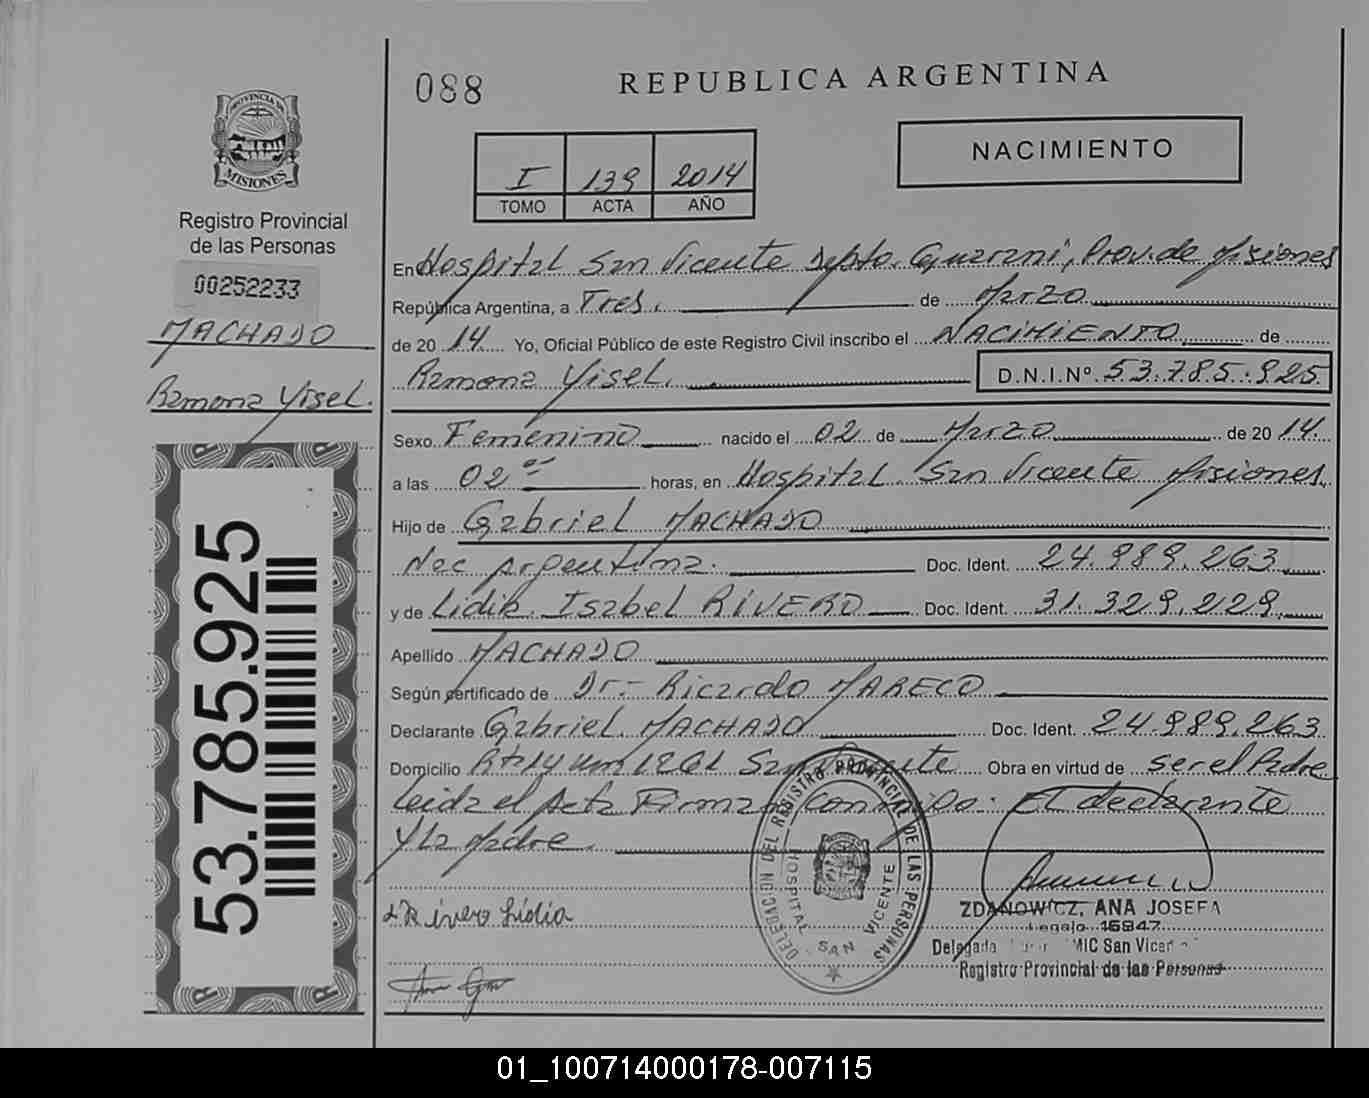 088
REPUBLICA ARGENTINA
PROVINCIA DE
MISIONES
Registro Provincial
de las Personas
00252233
MACHADO
Ramona Yisel.
53.785.925
I 139 2014
TOMO ACTA AÑO
NACIMIENTO
En Hospital San Vicente Depto. Guarani, Prov. de Misiones
República Argentina, a Tres. de Marzo
de 20 14 Yo, Oficial Público de este Registro Civil inscribo el NACIMIENTO de
Ramona Yisel. D.N.I.Nº 53.785.925
Sexo Femenino nacido el 02 de Marzo de 20 14.
a las 02 horas, en Hospital San Vicente Misiones.
Hijo de Gabriel MACHADO
Nac Argentina. Doc. Ident. 24.989.263
y de Lidia Isabel RIVERO Doc. Ident. 31.329.229
Apellido MACHADO
Según certificado de Dr.- Ricardo MARECO
Declarante Gabriel MACHADO Doc. Ident. 24.989.263
Domicilio San Vicente Obra en virtud de ser el Padre
Leida el Acta Firman Conmigo: El declarante
y la Madre.
DELEGACION DEL REGISTRO PROVINCIAL DE LAS PERSONAS
HOSPITAL SAN VICENTE
Rivero Lidia
ZDANOWICZ, ANA JOSEFA
Legajo 16947
Delegada MIC San Vicen
Registro Provincial de las Personas
01_100714000178-007115